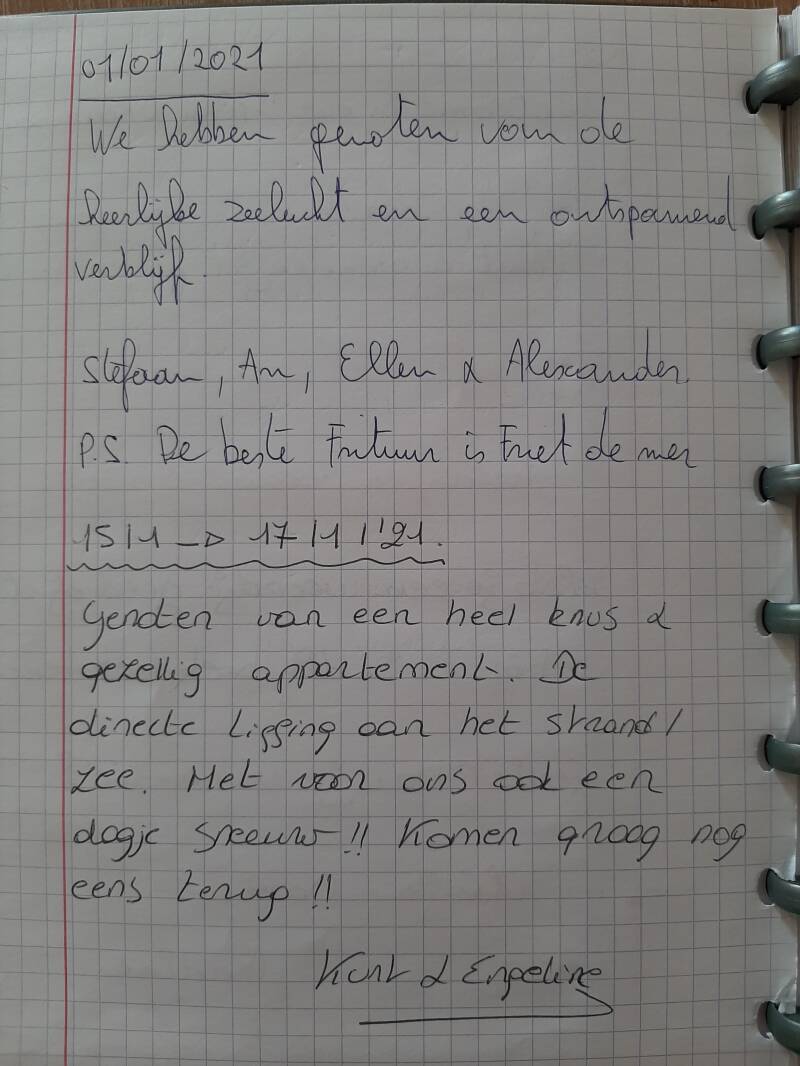 01/01/2021
We hebben genoten van de
heerlijke zeelucht en een ontspannend
verblijf.
Stefaan, An, Ellen & Alexander.
P.S. De beste Frituur is Friet de mer
15/1 -> 17/1/'21.
Genoten van een heel knus &
gezellig appartement. De
directe ligging aan het strand/
zee. Met voor ons ook een
dagje sneeuw!! Komen graag nog
eens terug!!
Kurt & Engeline